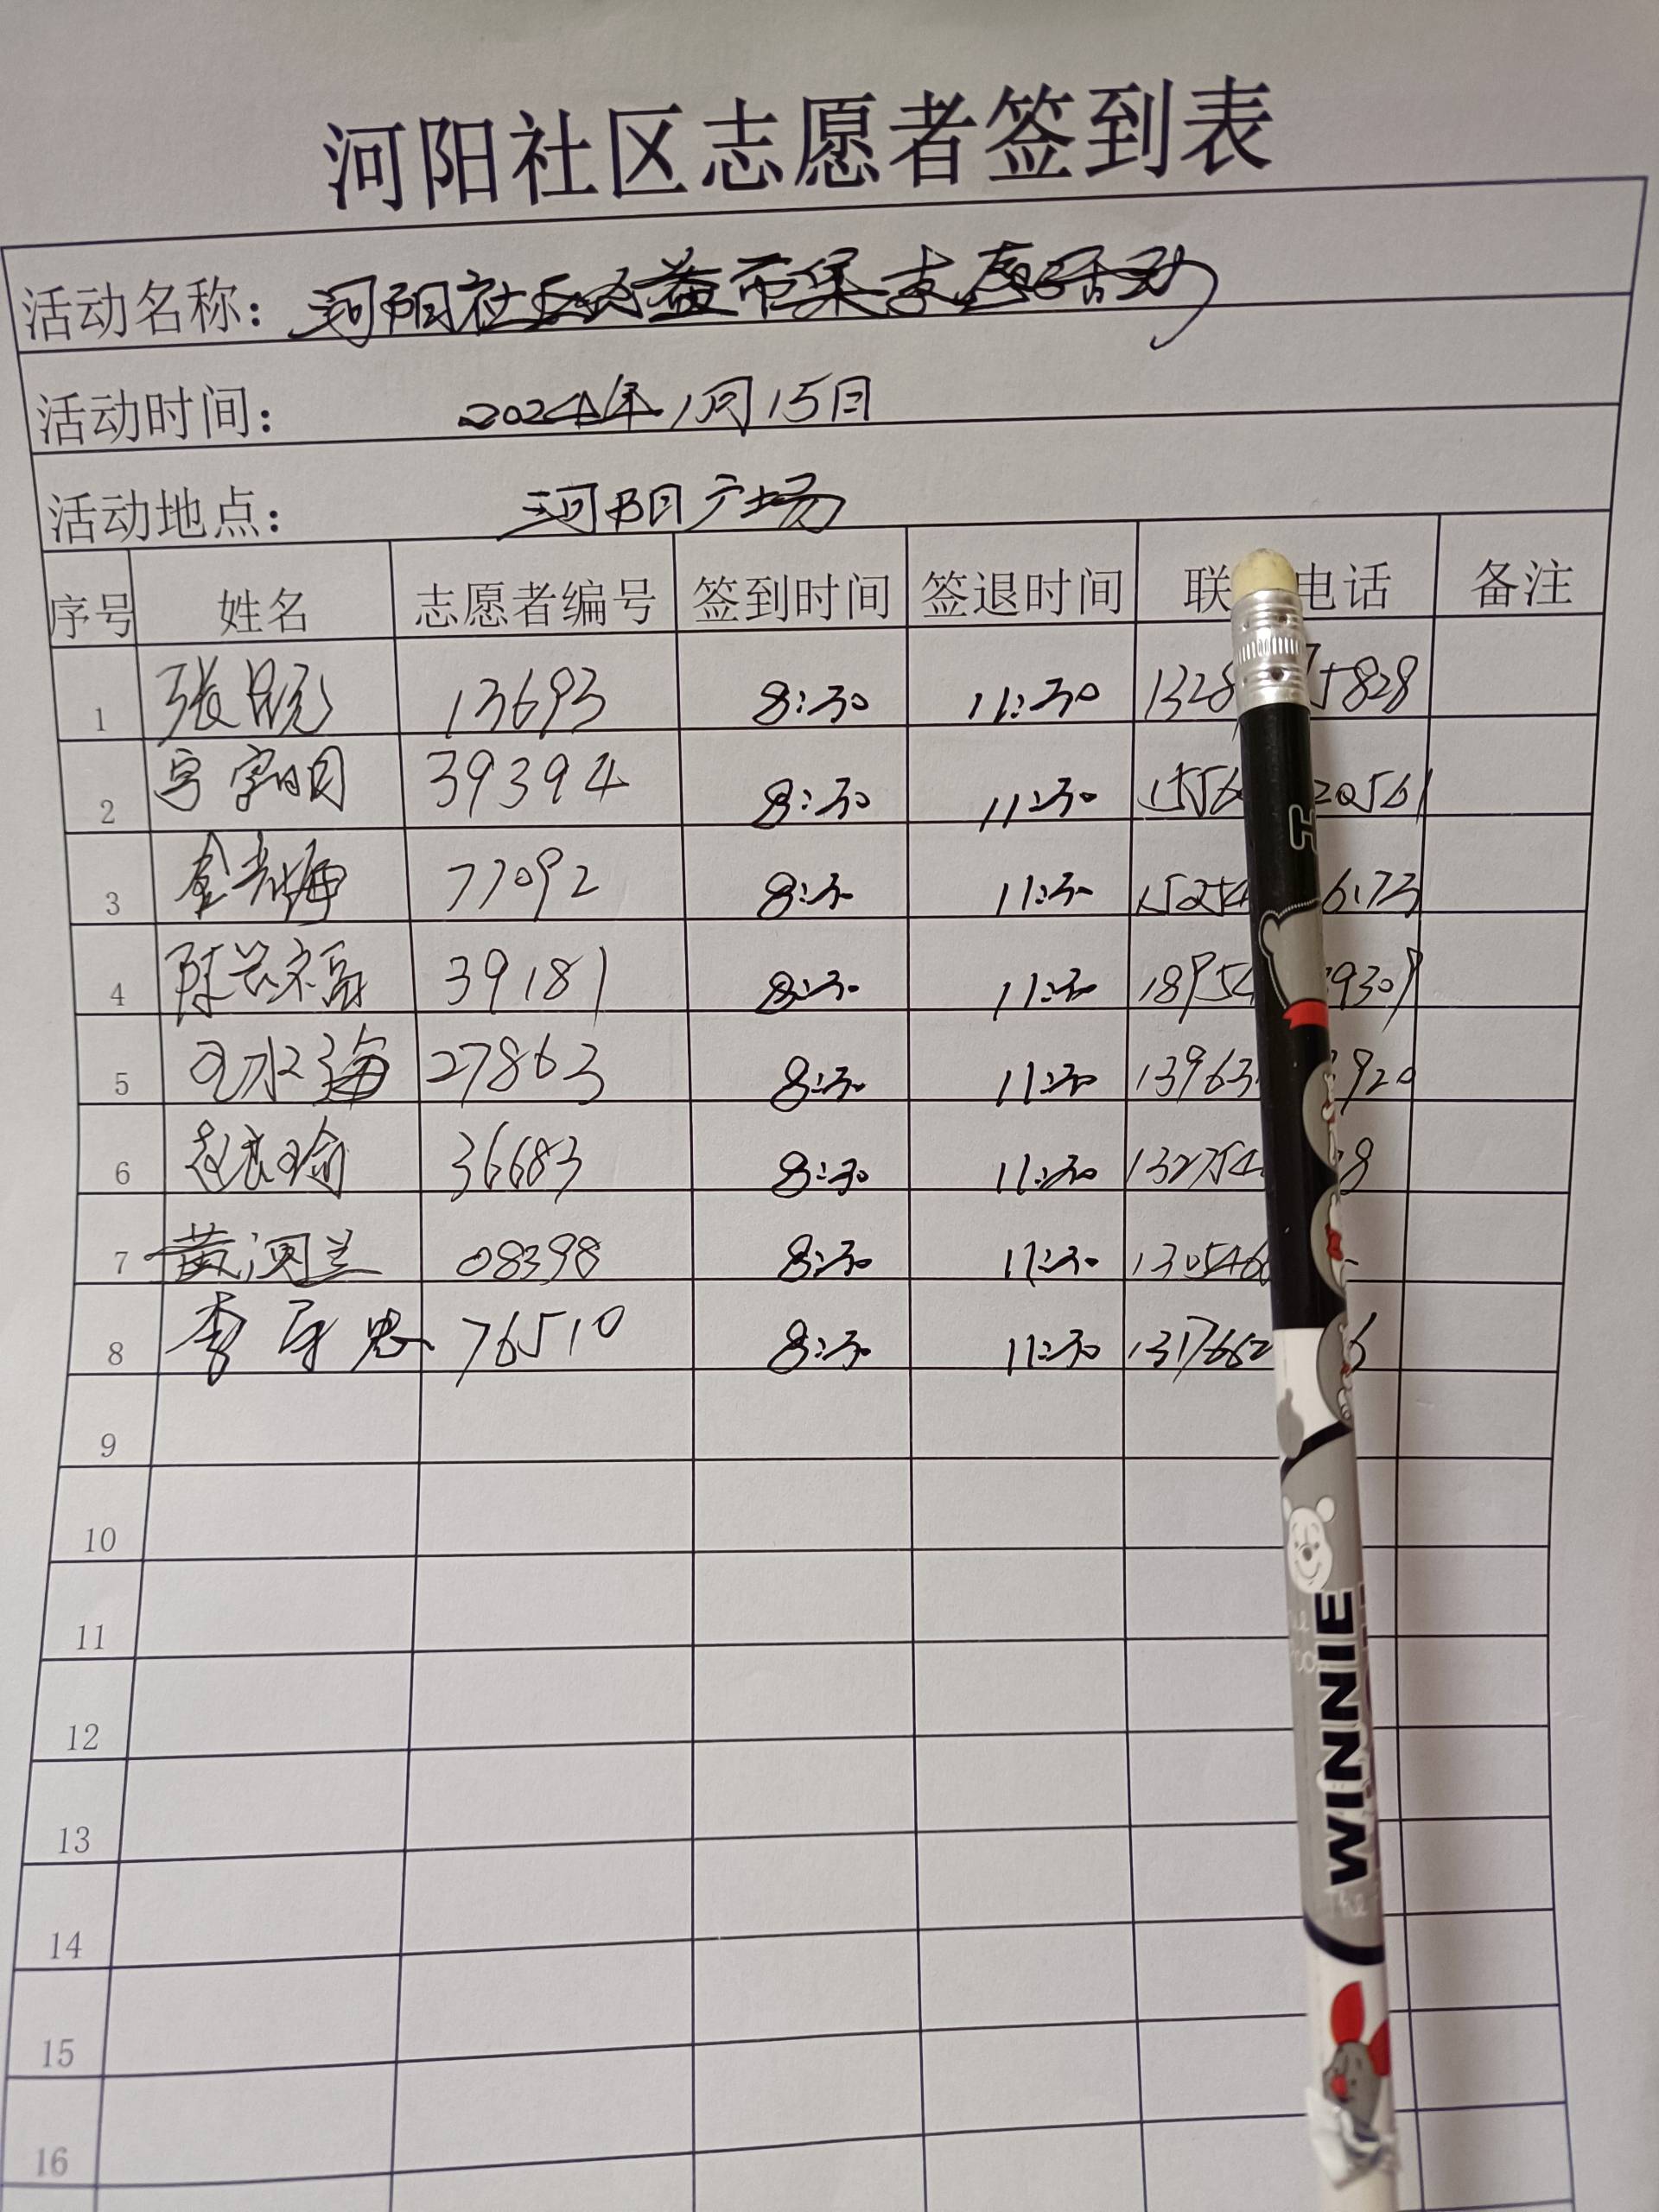 河阳社区志愿者签到表
活动名称: 河阳社区公益市集志愿活动
活动时间: 2024年1月15日
活动地点: 河阳广场
序号 姓名 志愿者编号 签到时间 签退时间 联 电话 备注
1 张 13693 8:30 11:30 1328 5828
2 39394 8:30 11:30 1556 20561
3 金 77092 8:30 11:30 15254 6173
4 陈 福 39181 8:30 11:30 18954 9309
5 王水海 27863 8:30 11:30 13963 920
6 赵 瑜 36683 8:30 11:30 132754 8
7 黄润兰 08398 8:30 11:30 130546
8 李 忠 76510 8:30 11:30 1317662 6
9
10
11
12
13
14
15
16
H
WINNIE
The